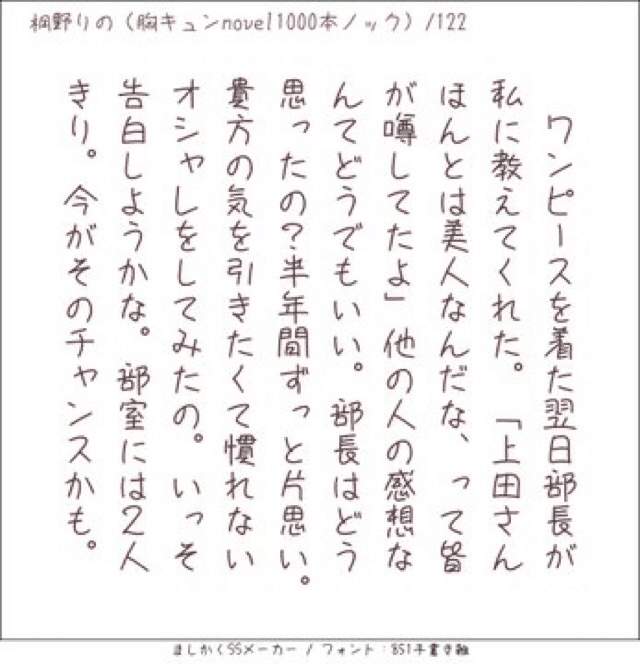 桐野りの（胸キュンnovel1000本ノック）/122
ワンピースを着た翌日部長が
私に教えてくれた。「上田さん
ほんとは美人なんだな、って皆
が噂してたよ」他の人の感想な
んてどうでもいい。部長はどう
思ったの？半年間ずっと片思い。
貴方の気を引きたくて慣れない
オシャレをしてみたの。いっそ
告白しようかな。部室には2人
きり。今がそのチャンスかも。
ましかくSSメーカー / フォント：851手書き雑